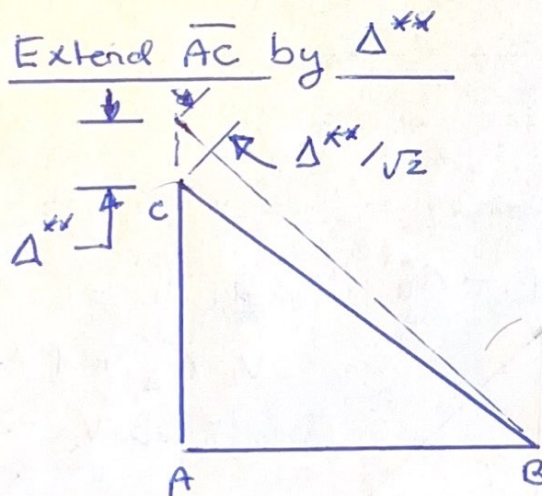 Extend AC by Δ**
Δ**/√2
C
Δ**
A
B